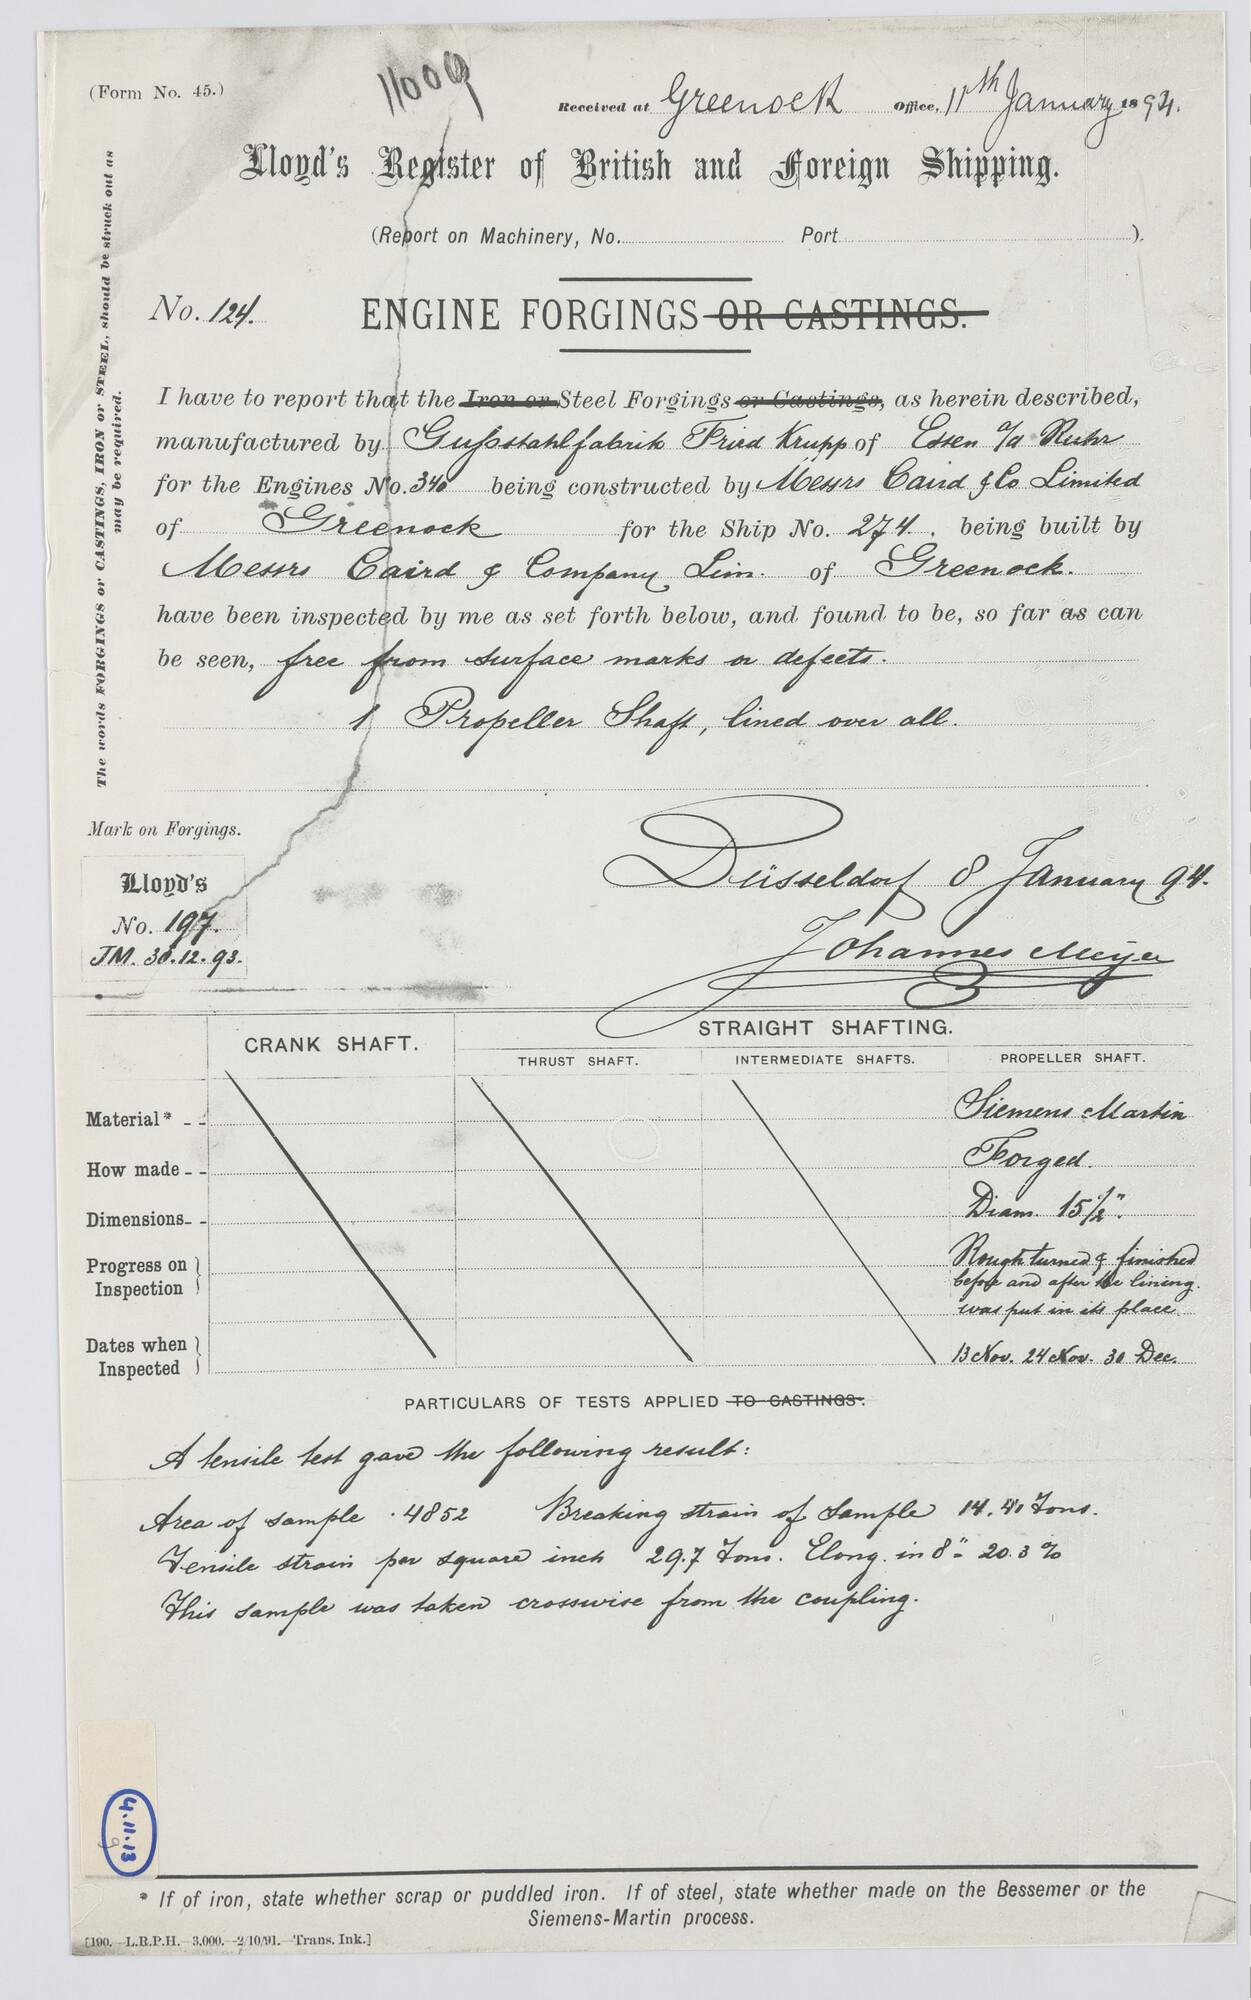 (Form No. 45.)
11009
Received at Greenock Office, 11th January 1894.
Lloyd's Register of British and Foreign Shipping.
(Report on Machinery, No. Port ).
The words FORGINGS or CASTINGS, IRON or STEEL, should be struck out as
may be required.
No. 124.
ENGINE FORGINGS OR CASTINGS.
I have to report that the Iron or Steel Forgings or Castings, as herein described,
manufactured by Gußstahlfabrik Fried Krupp of Essen a/d Ruhr
for the Engines No. 340 being constructed by Messrs Caird & Co Limited
of Greenock for the Ship No. 274. being built by
Messrs Caird & Company Lim. of Greenock.
have been inspected by me as set forth below, and found to be, so far as can
be seen, free from surface marks or defects.
1 Propeller Shaft, lined over all.
Mark on Forgings.
Lloyd's
No. 197.
JM. 30.12.93.
Düsseldorf 8 January 94.
Johannes Meyer
CRANK SHAFT.
STRAIGHT SHAFTING.
THRUST SHAFT. INTERMEDIATE SHAFTS. PROPELLER SHAFT.
Material* Siemens Martin
How made Forged.
Dimensions Diam. 15 1/2".
Progress on Inspection } Rough turned & finished
before and after the lining
was put in its place
Dates when Inspected } 13 Nov. 24 Nov. 30 Dec.
PARTICULARS OF TESTS APPLIED TO CASTINGS.
A tensile test gave the following result:
Area of sample .4852 Breaking strain of sample 14.41 Tons.
Tensile strain per square inch 29.7 Tons. Elong. in 8" = 20.3 %
This sample was taken crosswise from the coupling.
4.11.13
* If of iron, state whether scrap or puddled iron. If of steel, state whether made on the Bessemer or the
Siemens-Martin process.
[190.—L.R.P.H.—3,000.—2/10/91.—Trans. Ink.]